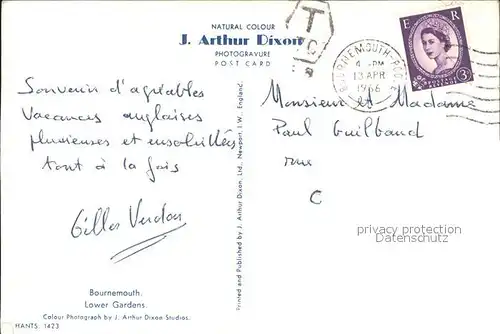 NATURAL COLOUR
J. Arthur Dixon
PHOTOGRAVURE
POST CARD
Souvenir d'agréables
vacances anglaises
pluvieuses et ensoleillées
tout à la fois
Gilles Verdon
Bournemouth.
Lower Gardens.
Colour Photograph by J. Arthur Dixon Studios.
HANTS. 1423
Printed and Published by J. Arthur Dixon, Ltd., Newport, I.W., England.
T
BOURNEMOUTH-POOLE
PM
13 APR
1966
E R
3D
Monsieur et Madame
Paul Guilbaud
rue
C
privacy protection